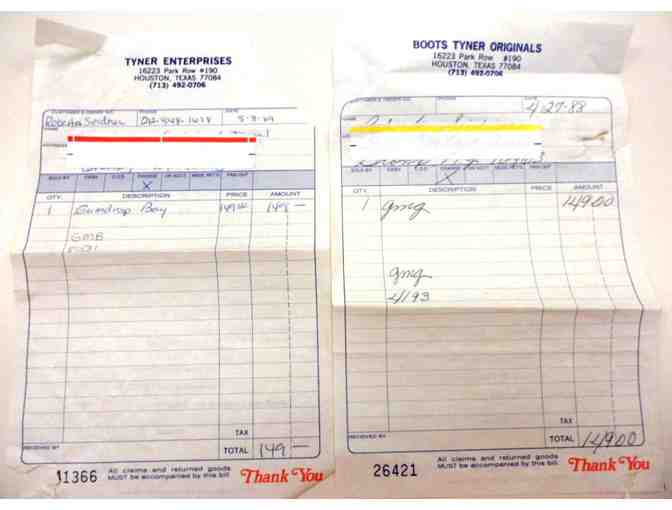 TYNER ENTERPRISES
16223 Park Row #190
HOUSTON, TEXAS 77084
(713) 492-0706
CUSTOMER'S ORDER NO. PHONE DATE
NAME
ADDRESS
SOLD BY CASH C.O.D. CHARGE ON ACCT. MDSE. RETD. PAID OUT
X
QTY. DESCRIPTION PRICE AMOUNT
1 Gumdrop Boy 149 149 —
GMB
TAX
RECEIVED BY
TOTAL 149 —
11366 All claims and returned goods MUST be accompanied by this bill. Thank You
BOOTS TYNER ORIGINALS
16223 Park Row #190
HOUSTON, TEXAS 77084
(713) 492-0706
CUSTOMER'S ORDER NO. PHONE DATE
4/27-88
SOLD BY CASH C.O.D. CHARGE ON ACCT. MDSE. RETD. PAID OUT
X
QTY. DESCRIPTION PRICE AMOUNT
1 gmg 14900
gmg
2/193
TAX
RECEIVED BY
TOTAL 14900
26421 All claims and returned goods MUST be accompanied by this bill. Thank You